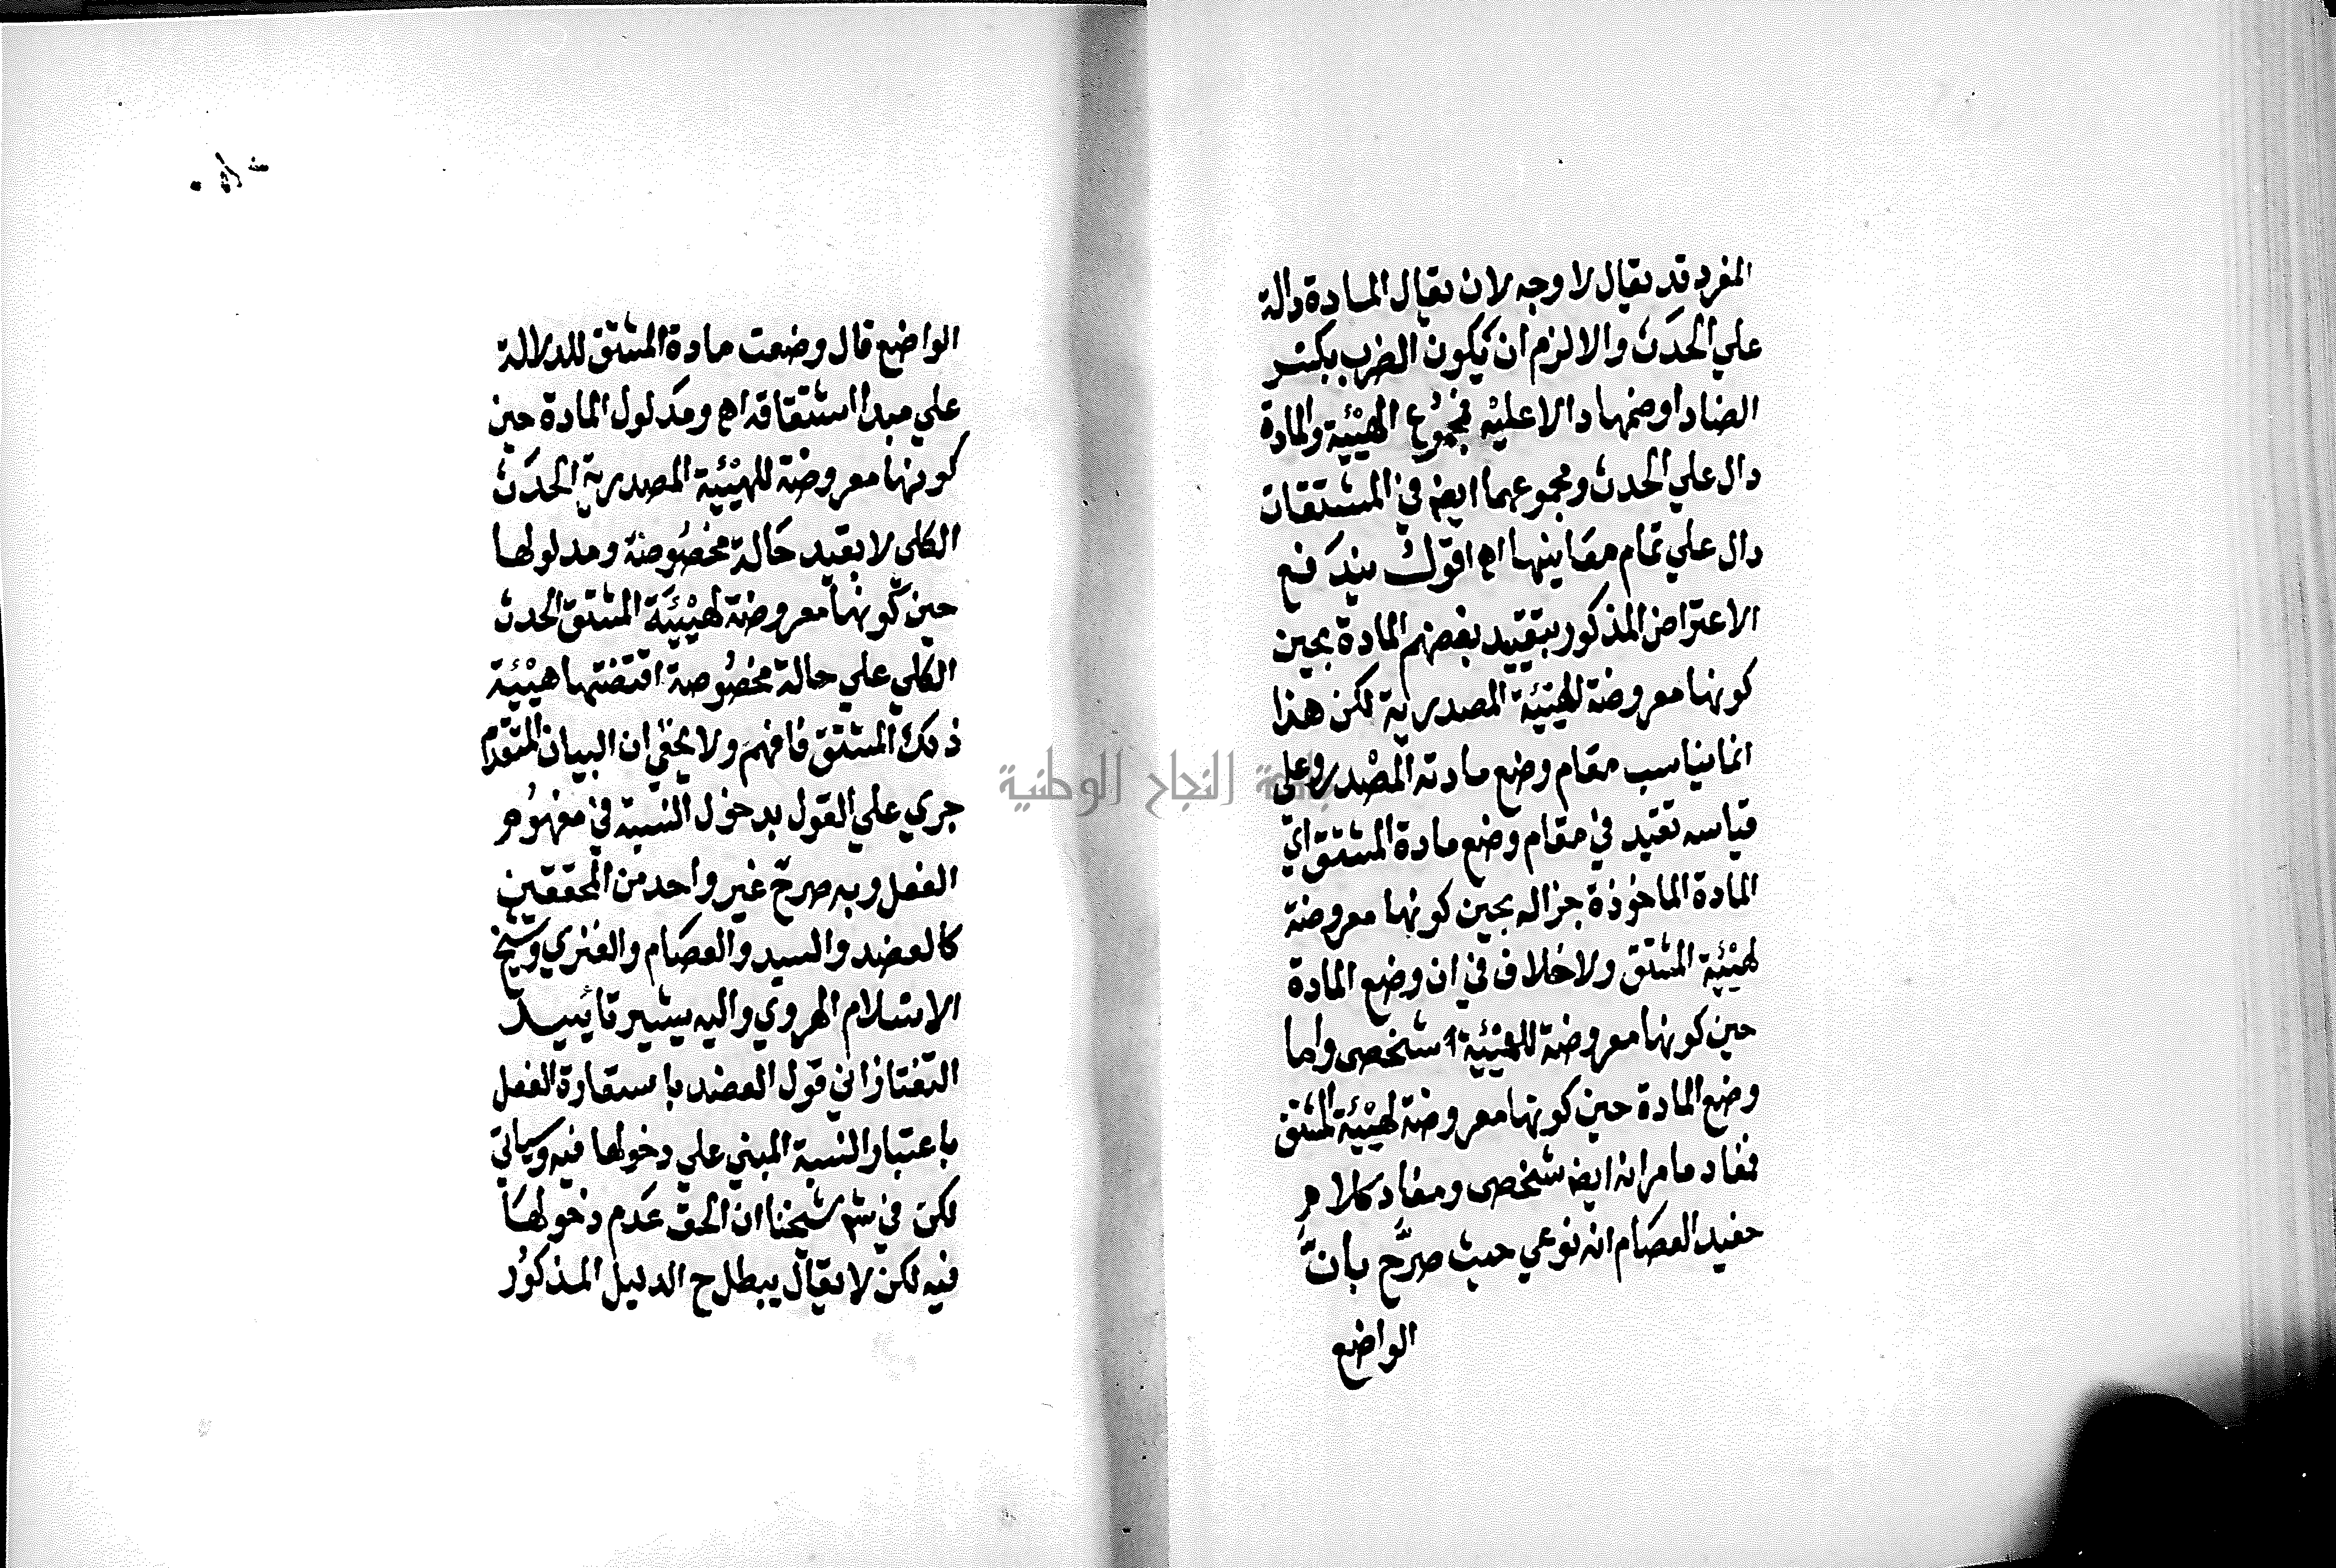 المفرد قد يقال لا وجه لان يقال المادة دالة
علي الحدث والا لزم ان يكون الضرب بكسر
الضاد اوضمها دالا عليه فمجموع الهيئية والمادة
دال علي الحدث ومجموعهما ايض في المشتقات
دال علي تمام معاينها اه اقول يندفع
الاعتراض المذكور بتقييد بعضهم المادة بحين
كونها معروضة للهيئية المصدرية لكن هذا
انما يناسب مقام وضع مادته المصدر وعلي
قياسه تقيد في مقام وضع مادة المشتق اي
المادة الماخوذة جزاله بحين كونها معروضة
لهيئية المشتق ولا خلاف في ان وضع المادة
حين كونها معروضة للهيئية شخصى واما
وضع المادة حين كونها معروضة لهيئية المشتق
فمفاد مامرانه ايض شخصى ومفاد كلام
حفيد العصام انه نوعي حيث صرح بان
الواضع
الواضع قال وضعت مادة المشتق للدلالة
علي مبدا اشتقاقه اه ومدلول المادة حين
كونها معروضة للهيئية المصدرية الحدث
الكلى لا بقيد حالة مخصوصة ومدلولها
حين كونها معروضة لهيئية المشتق الحدث
الكلي علي حالة مخصوصة اقتضتها هيئية
ذلك المشتق فافهم ولا يخفي ان البيان المتقدم
جري علي القول بدخول النسبة في مفهوم
الفعل وبه صرح غير واحد من المحققين
كالعضد والسيد والعصام والفنري وشيخ
الاسلام الهروي واليه يشير تاييد
التفتازاني قول العضد باستعارة الفعل
باعتبار النسبة المبني علي دخولها فيه وسياتي
لكن في شر شيخنا ان الحق عدم دخولها
فيه لكن لا يقال يبطل ح الدليل المذكور
جامعة النجاح الوطنية